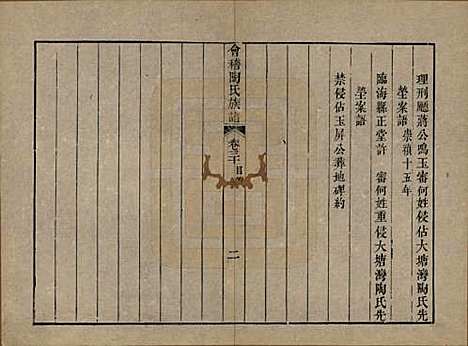 理刑廳蔣公鳴玉審何姓侵佔大塘灣陶氏先
塋案語 崇禎十五年
臨海縣正堂許 審何姓重侵大塘灣陶氏先
塋案語
禁侵佔玉屏公葬地碑約
會稽陶氏族譜 卷三十 目 二